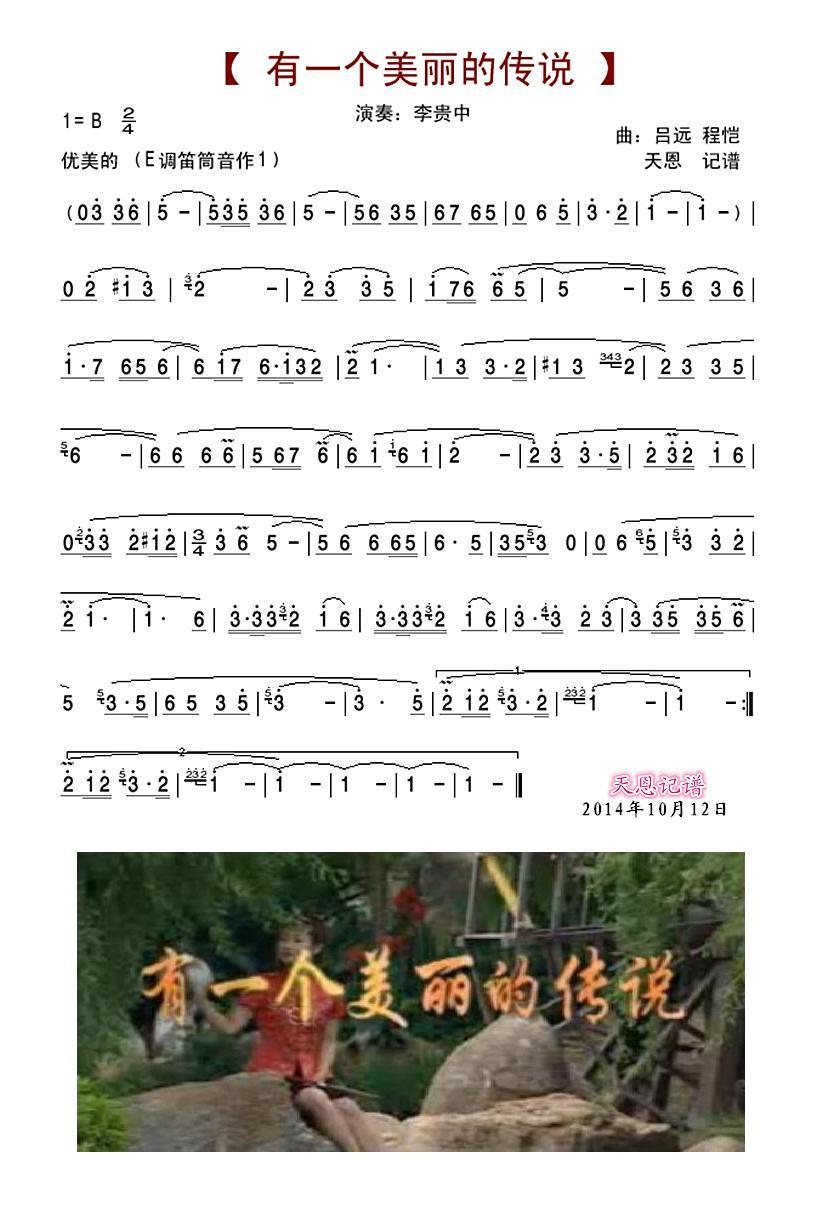 【 有一个美丽的传说 】
演奏：李贵中
1=B 2/4
曲：吕远 程恺
优美的（E调笛筒音作1）
天恩 记谱
(03 36|5 -|535 36|5 -|56 35|67 65|0 6 5|3·2|1 -|1 -)|
0 2 #1 3 | 3 2 -|2 3 3 5|1 76 6 5|5 -|5 6 3 6|
1·7 656|6 17 6·132|2 1·|1 3 3·2|#1 3 343 2|2 3 3 5|
5 6 -|6 6 6 6|5 67 6|6 1 1 6 1|2 -|2 3 3·5|2 32 1 6|
0 2 33 2#12|3/4 3 6 5 -|5 6 665|6·5|35 5 3 0|0 6 6 5|5 3 3 2|
2 1·|1· 6|3·33 3 2 1 6|3·33 3 2 1 6|3· 4 3 2 3|3 35 35 6|
5 5 3·5|6 5 3 5|5 3 -|3 · 5|1. 2 12 5 3·2|232 1 -|1 -:‖
2. 2 12 5 3·2|232 1 -|1 -|1 -|1 -‖
天恩记谱
2014年10月12日
有一个美丽的传说